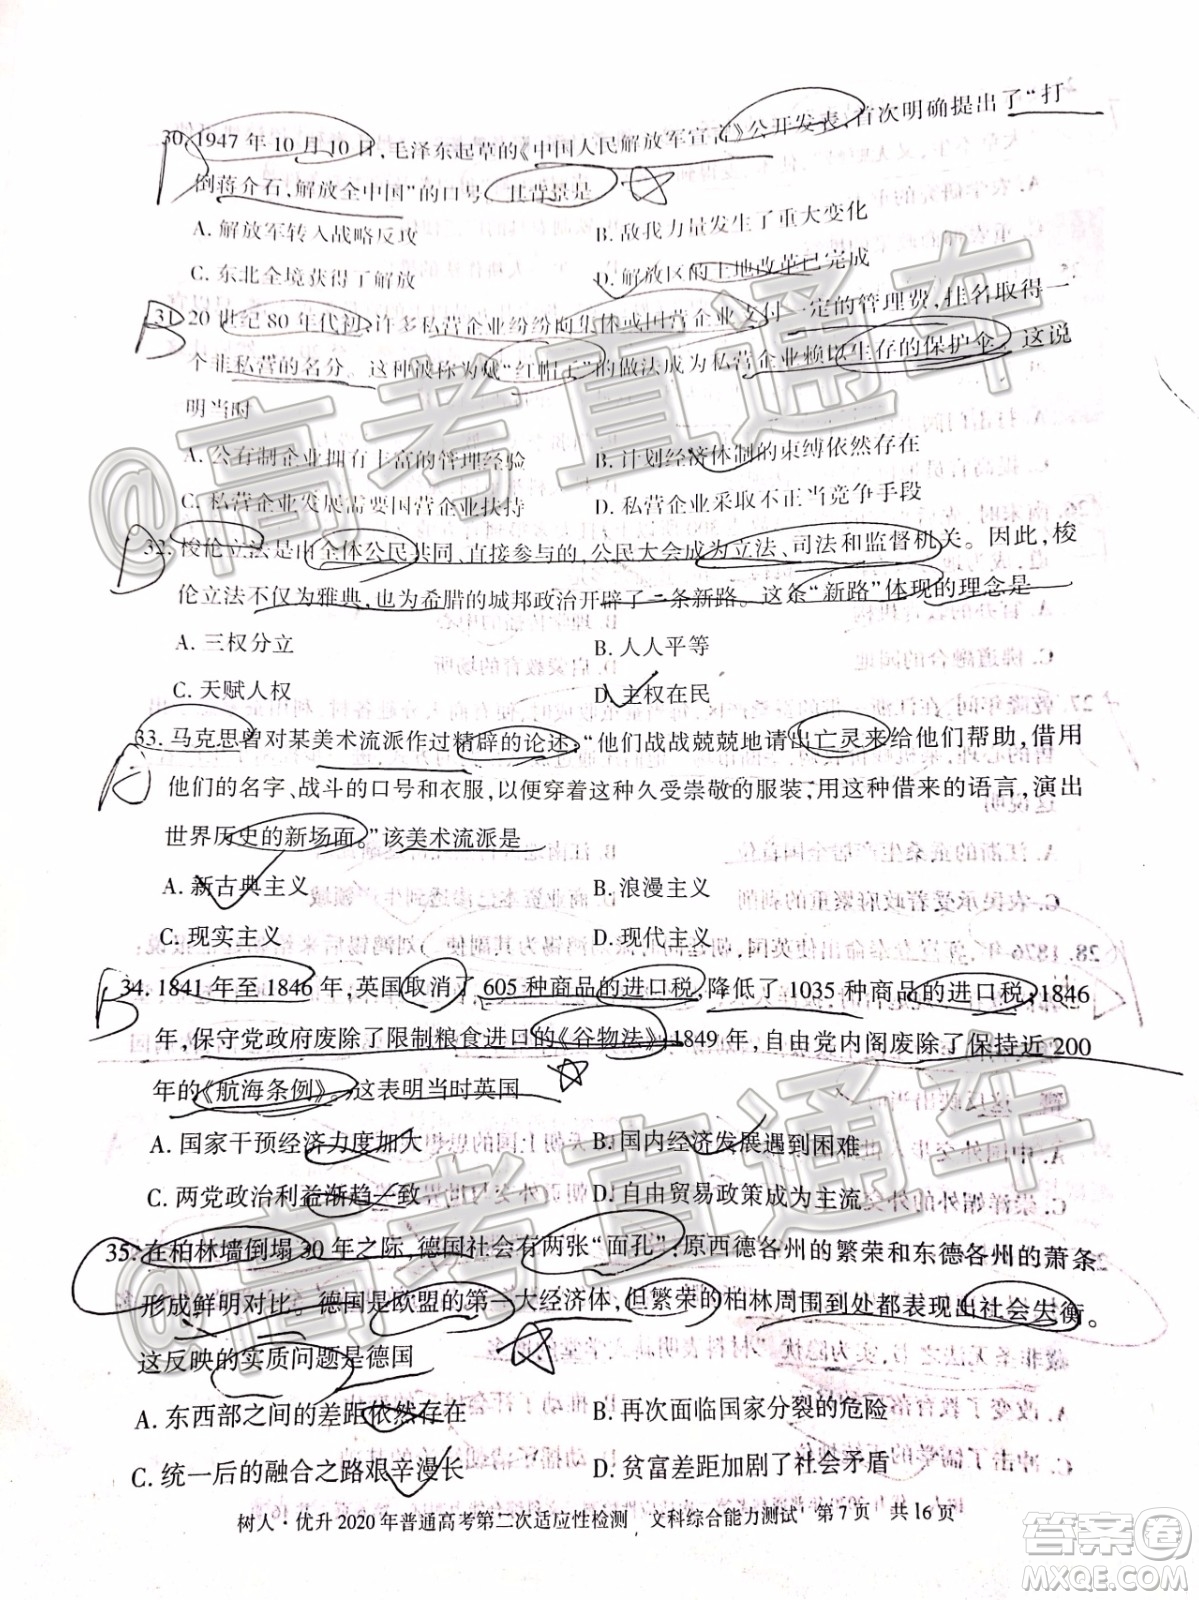 30. 1947 年 10 月 10 日,毛泽东起草的《中国人民解放军宣言》公开发表,首次明确提出了“打
倒蒋介石,解放全中国”的口号。其背景是
A. 解放军转入战略反攻
B. 敌我力量发生了重大变化
C. 东北全境获得了解放
D. 解放区的土地改革已完成
31. 20 世纪 80 年代初,许多私营企业纷纷向集体或国营企业支付一定的管理费,挂名取得一
个非私营的名分。这种被称为戴“红帽子”的做法成为私营企业赖以生存的保护伞。这说
明当时
A. 公有制企业拥有丰富的管理经验
B. 计划经济体制的束缚依然存在
C. 私营企业发展需要国营企业扶持
D. 私营企业采取不正当竞争手段
32. 梭伦立法是由全体公民共同、直接参与的,公民大会成为立法、司法和监督机关。因此,梭
伦立法不仅为雅典,也为希腊的城邦政治开辟了一条新路。这条“新路”体现的理念是
A. 三权分立
B. 人人平等
C. 天赋人权
D. 主权在民
33. 马克思曾对某美术流派作过精辟的论述:“他们战战兢兢地请出亡灵来给他们帮助,借用
他们的名字、战斗的口号和衣服,以便穿着这种久受崇敬的服装,用这种借来的语言,演出
世界历史的新场面。”该美术流派是
A. 新古典主义
B. 浪漫主义
C. 现实主义
D. 现代主义
34. 1841 年至 1846 年,英国取消了 605 种商品的进口税,降低了 1035 种商品的进口税;1846
年,保守党政府废除了限制粮食进口的《谷物法》;1849 年,自由党内阁废除了保持近 200
年的《航海条例》。这表明当时英国
A. 国家干预经济力度加大
B. 国内经济发展遇到困难
C. 两党政治利益渐趋一致
D. 自由贸易政策成为主流
35. 在柏林墙倒塌 30 年之际,德国社会有两张“面孔”:原西德各州的繁荣和东德各州的萧条
形成鲜明对比。德国是欧盟的第一大经济体,但繁荣的柏林周围到处都表现出社会失衡。
这反映的实质问题是德国
A. 东西部之间的差距依然存在
B. 再次面临国家分裂的危险
C. 统一后的融合之路艰辛漫长
D. 贫富差距加剧了社会矛盾
树人·优升 2020 年普通高考第二次适应性检测 文科综合能力测试 第 7 页 共 16 页
@高考直通车
@高考直通车
答案圈
MXQE.COM